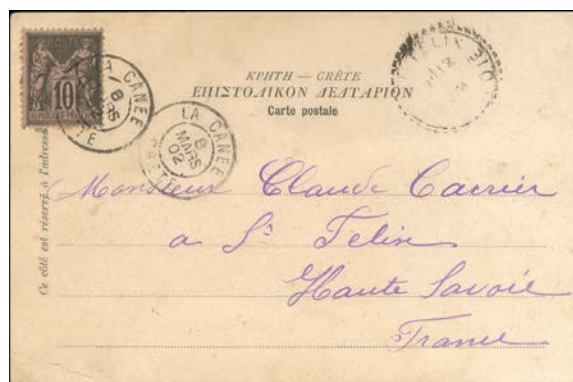 10
LA CANEE
8
MARS
CRETE
LA CANEE
8
MARS
02
CRETE
ΚΡΗΤΗ — CRÈTE
ΕΠΙΣΤΟΛΙΚΟΝ ΔΕΛΤΑΡΙΟΝ
Carte postale
Ce côté est réservé à l'adresse
Monsieur Claude Carrier
a St Felix
Haute Savoie
France